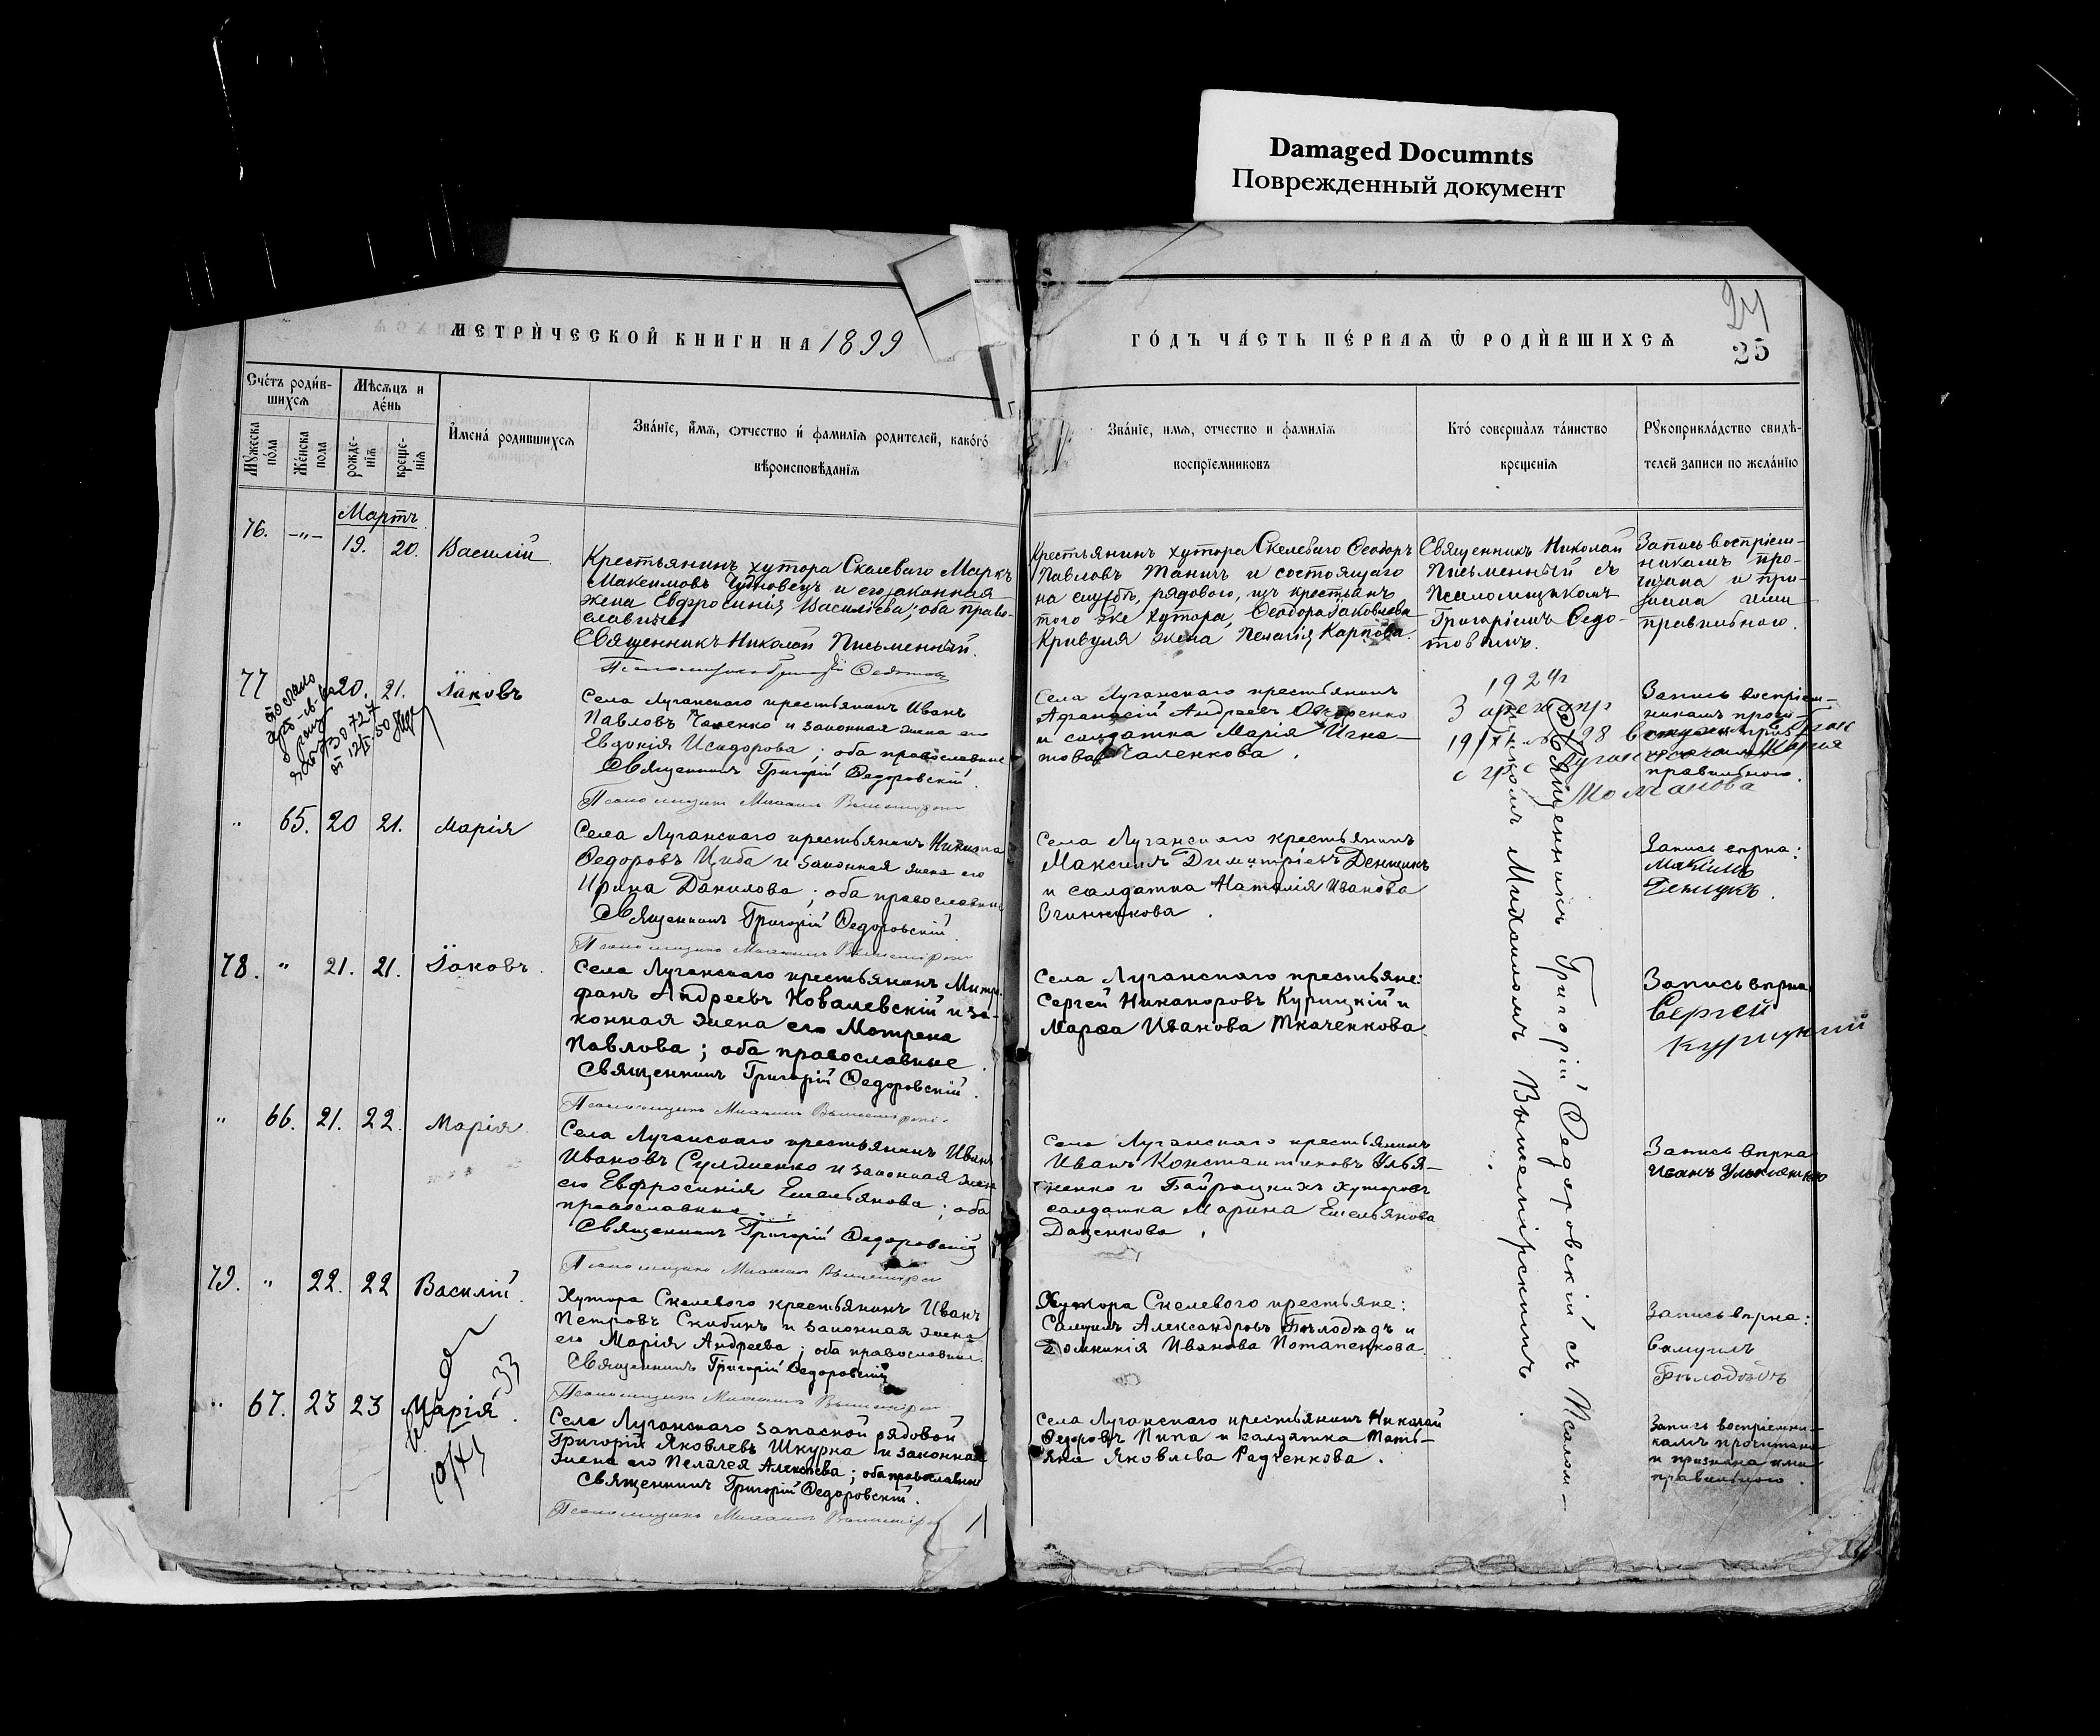 Damaged Documnts
Поврежденный документ
24
25
МЕТРИ́ЧЕСКОЙ КНИГИ НА 1899
ГО́ДЪ ЧА́СТЬ ПЕ́РВАѦ Ѿ РОДИ́ВШИХСѦ
Сче́тъ роди́в-
шихсѧ
Мѣсѧцъ и
де́нь
Мꙋ́жеска
по́ла
Же́нска
пола
рожде-
нїѧ
креще-
нїѧ
Имена́ родившихсѧ
Зва́нїе, и́мѧ, ѻтчество и фамилїѧ родителей, како́гѡ
вѣроисповѣ́данїѧ
Зва́нїе, имѧ, отчество и фамилїѧ
воспрїемниковъ
Кто́ соверша́лъ та́инство
крещенїѧ
Рꙋкоприкла́дство свидѣ-
телей записи по жела́нїю
Мартъ
76. -"- 19. 20. Василій
Крестьянинъ хутора Скелеваго Маркъ
Максимовъ и его законная
жена Евфросинія Василіева; оба право-
славные
Священникъ Николай Письменный.
Крестьянинъ хутора Скелеваго Ѳеодоръ
Павловъ Таничъ и состоящаго
на службѣ, рядового, изъ крестьянъ
того же хутора, Ѳеодора Іаковлева
Кривуля жена Пелагія Карпова.
Священникъ Николай
Письменный съ
Псаломщикомъ
Григоріемъ Ѳедо-
товымъ.
Запись воспріем-
никамъ про-
читана и при-
знана ими
правильною.
77 20. 21. Іаковъ
Села Луганскаго крестьянинъ Иванъ
Павловъ Чаленко и законная жена его
Евдокія Исидорова; оба православные
Священникъ Григорій Ѳедоровскій.
Псаломщикъ Михаилъ
Села Луганскаго крестьянинъ
Афанасій Андреевъ Овчаренко
и солдатка Марія Игна-
това Чаленкова.
1924г
Запись воспріем-
никамъ
правильною.
" 65. 20 21. Марія
Села Луганскаго крестьянинъ
Ѳедоровъ Циба и законная жена его
Ирина Данилова; оба православные
Священникъ Григорій Ѳедоровскій.
Псаломщикъ Михаилъ
Села Луганскаго крестьянинъ
Максимъ Димитріевъ Денщикъ
и солдатка Наталія Иванова
Запись вѣрна:
78. " 21. 21. Іаковъ.
Села Луганскаго крестьянинъ Митро-
фанъ Андреевъ Ковалевскій и за-
конная жена его Мотрена
Павлова; оба православные.
Священникъ Григорій Ѳедоровскій.
Псаломщикъ Михаилъ
Села Луганскаго крестьяне:
Сергей Никаноровъ Курицкій и
Марѳа Иванова Ткаченкова.
Запись вѣрна
Сергей
Курицкий
" 66. 21. 22. Марія.
Села Луганскаго крестьянинъ Иванъ
Ивановъ и законная жена
его Евфросинія Емельянова; оба
православные.
Священникъ Григорій Ѳедоровскій
Псаломщикъ Михаилъ
Села Луганскаго крестьянинъ
Иванъ Константиновъ Улья-
ненко и Байрацкихъ хуторовъ
солдатка Марина Емельянова
Даценкова.
Запись вѣрна
Иванъ
79. " 22. 22 Василій.
Хутора Скелевого крестьянинъ Иванъ
Петровъ Скибинъ и законная жена
его Марія Андреева; оба православные.
Священникъ Григорій Ѳедоровскій
Псаломщикъ Михаилъ
Хутора Скелевого крестьяне:
Самуилъ Александровъ Бѣлодѣдъ и
Домникія Иванова Потапенкова.
Запись вѣрна:
Самуилъ
Бѣлодѣдъ
" 67. 23 23 Марія.
Села Луганскаго запасной рядовой
Григорій Яковлевъ Шкурка и законная
жена его Пелагея Алексѣева; оба православные
Священникъ Григорій Ѳедоровскій.
Псаломщикъ Михаилъ
Села Луганскаго крестьянинъ Николай
Ѳедоровъ Пипа и солдатка Тать-
яна Яковлева Радченкова.
Запись воспріемни-
камъ прочитана
и признана ими
правильною.
Священникъ Григорій Ѳедоровскій съ Псалом-
щикомъ Михаиломъ Вышемірскимъ.